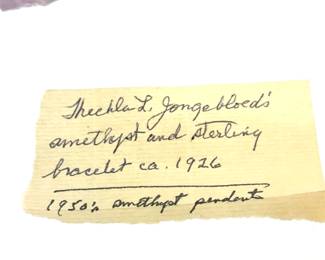 Theckla L. Jongebloed's
amethyst and sterling
bracelet ca. 1926
1950's amethyst pendants